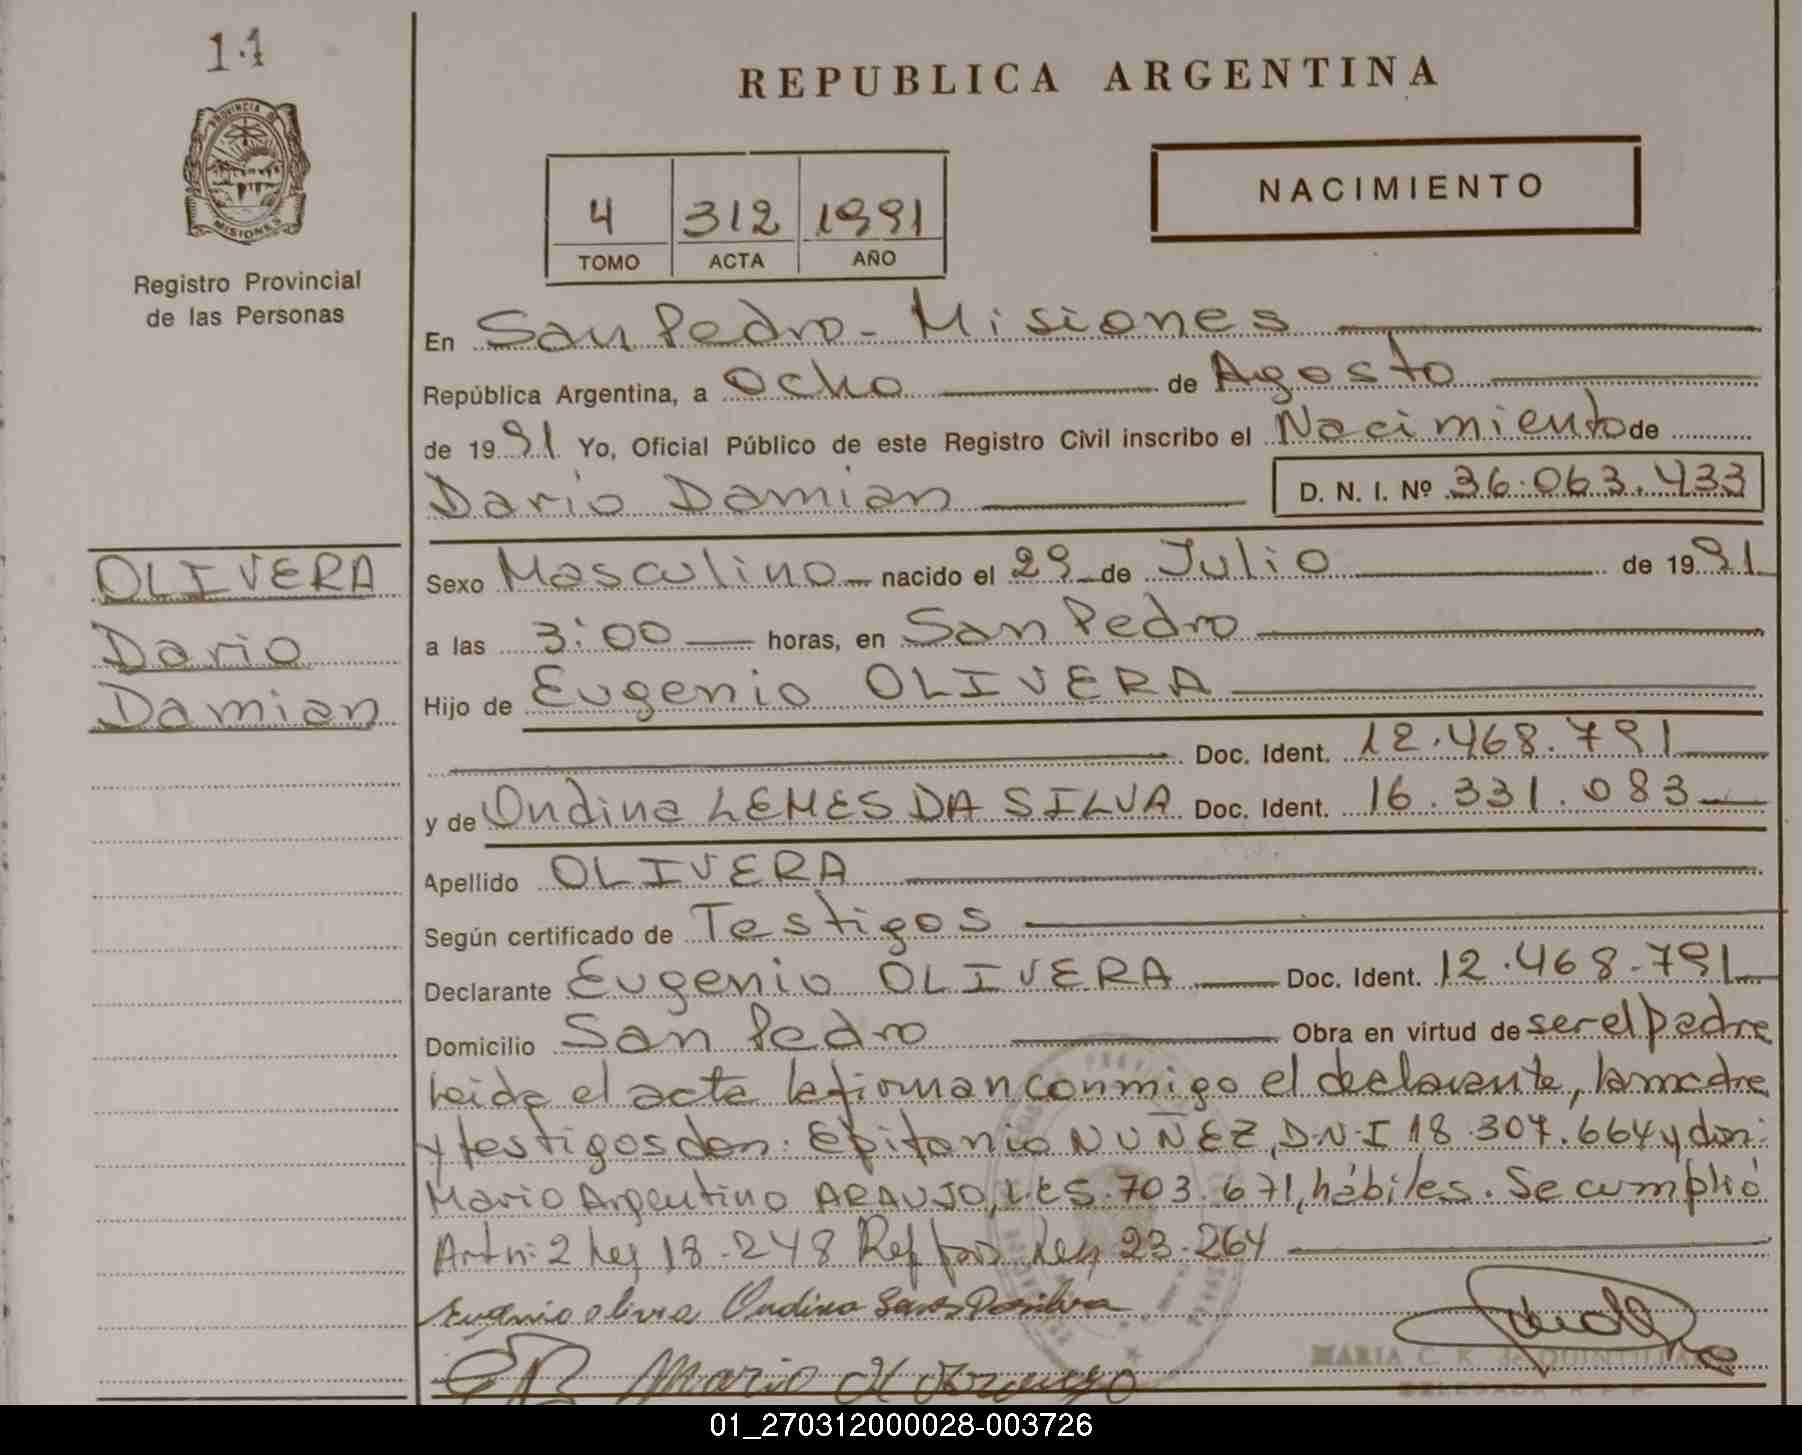 14
PROVINCIA DE
MISIONES
Registro Provincial
de las Personas
OLIVERA
Dario
Damian
REPUBLICA ARGENTINA
4 312 1991
TOMO ACTA AÑO
NACIMIENTO
En San Pedro - Misiones
República Argentina, a Ocho de Agosto
de 1991 Yo, Oficial Público de este Registro Civil inscribo el Nacimiento de
Dario Damian D. N. I. Nº 36.063.433
Sexo Masculino nacido el 29 de Julio de 1991
a las 3:00 horas, en San Pedro
Hijo de Eugenio OLIVERA
Doc. Ident. 12.468.791
y de Ondina LEMES DA SILVA Doc. Ident. 16.331.083
Apellido OLIVERA
Según certificado de Testigos
Declarante Eugenio OLIVERA Doc. Ident. 12.468.791
Domicilio San Pedro Obra en virtud de ser el padre
Leida el acta la firman conmigo el declarante, la madre
y testigos don: Epifanio NUÑEZ, D.N.I 18.307.664 y don:
Mario Argentino ARAUJO, L.E 5.703.671, hábiles. Se cumplió
Art n: 2 Ley 18.248 Ref por Ley 23.264
Eugenio olivera Ondina Da silva
Mario
MARIA C. K. de
01_270312000028-003726